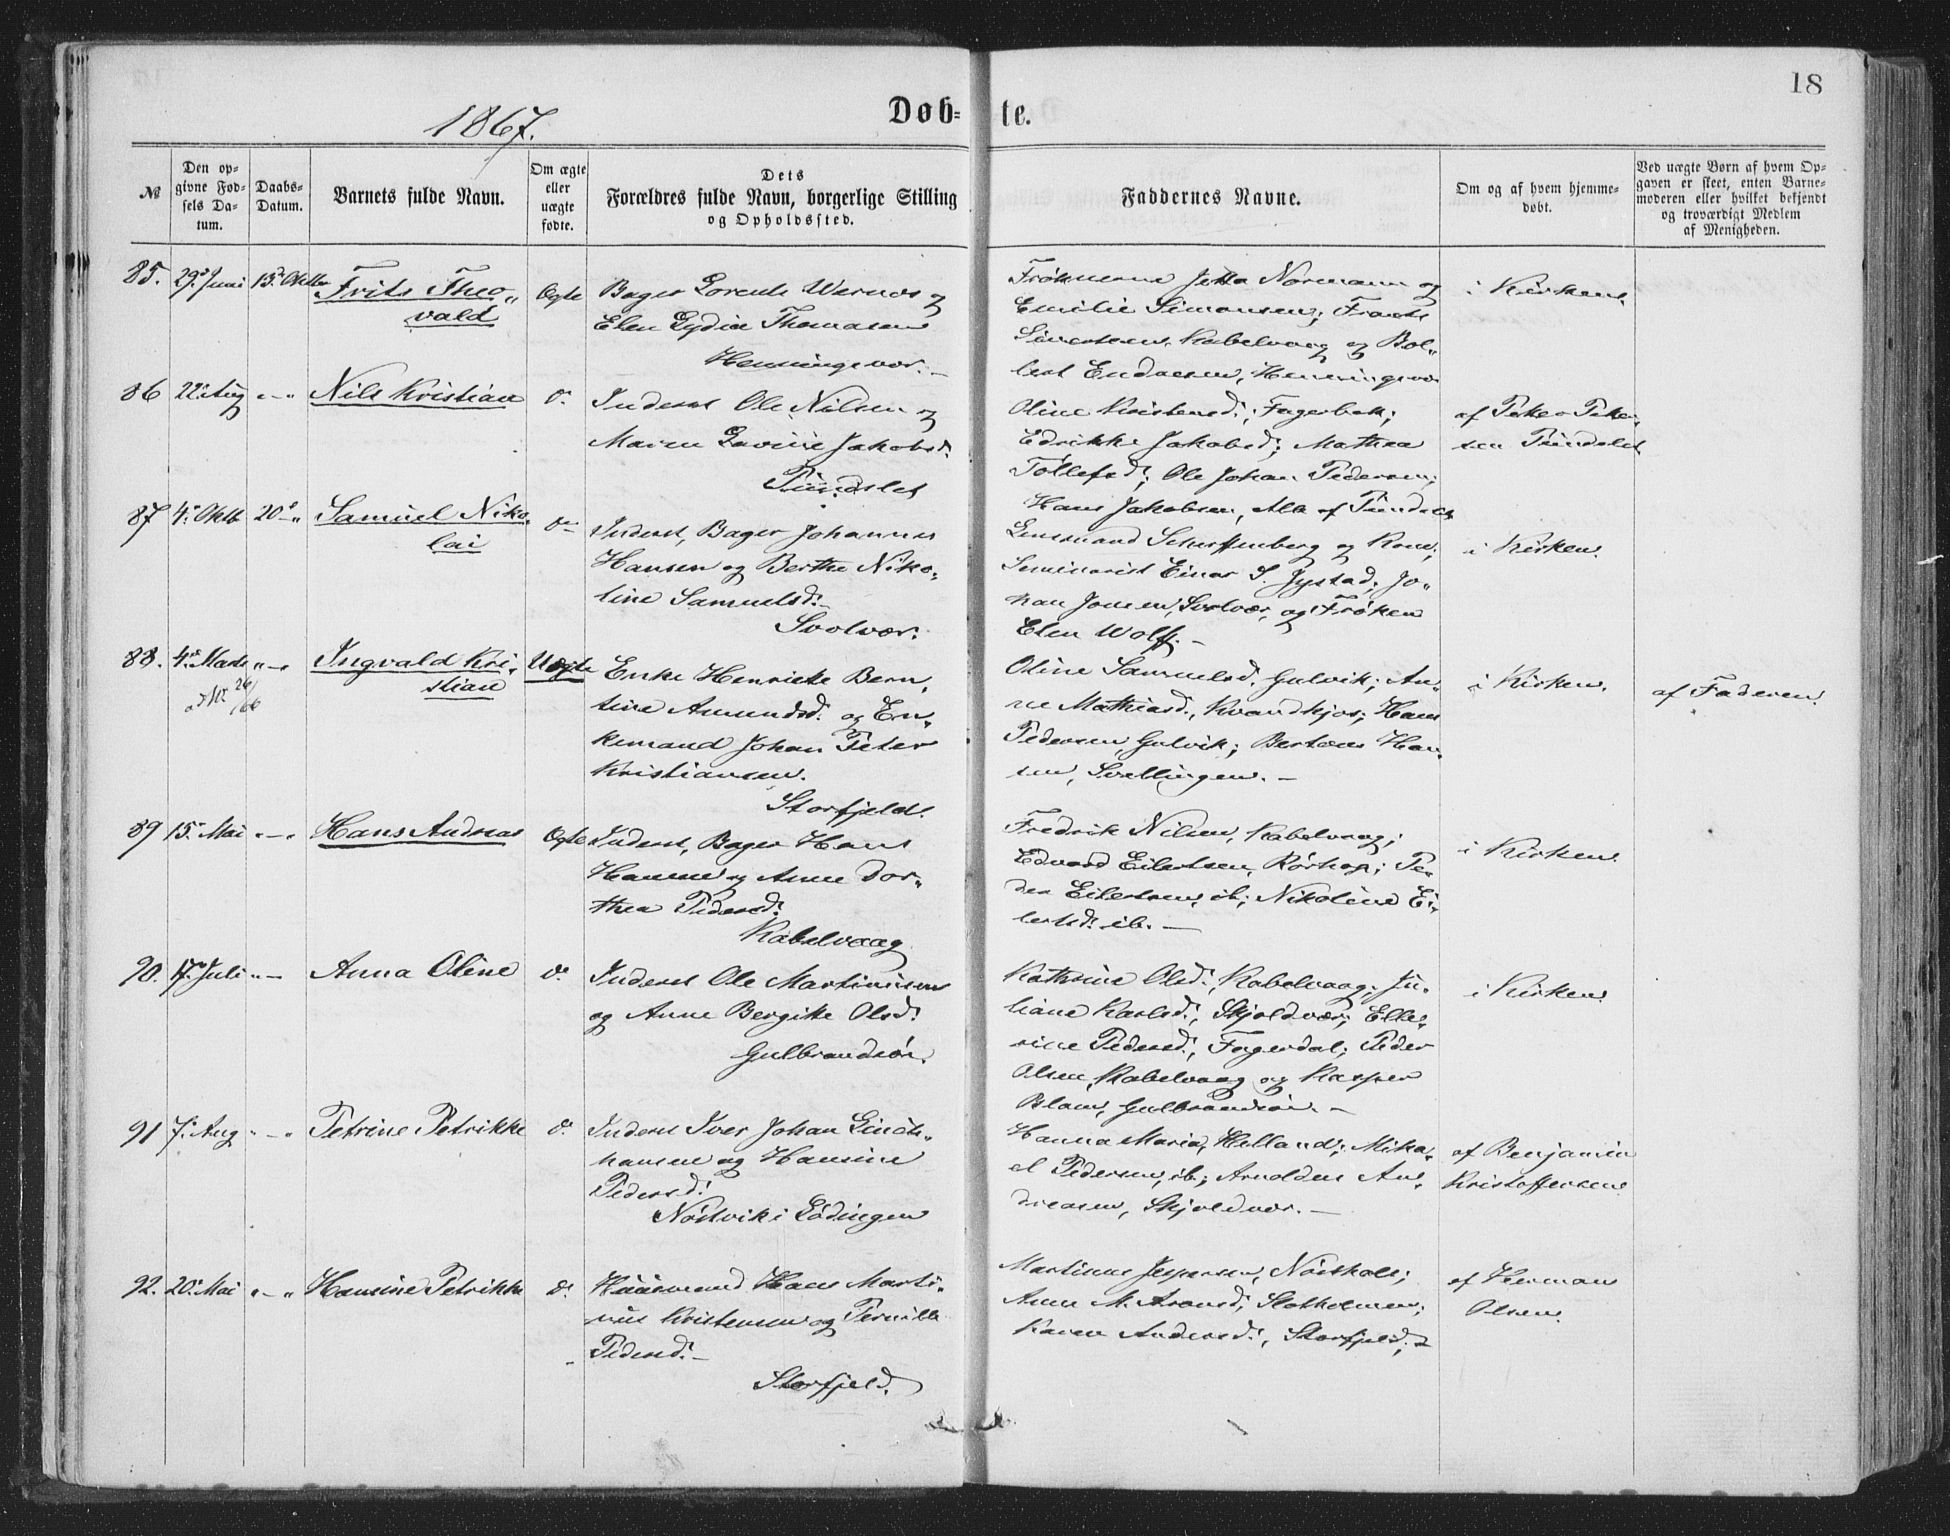 18
1867.
Døb-te.
№
Den op-
givne Fød-
sels Da-
tum.
Daabs-
Datum.
Barnets fulde Navn.
Om ægte
eller
uægte
fødte.
Dets
Forældres fulde Navn, borgerlige Stilling
og Opholdssted.
Faddernes Navne.
Om og af hvem hjemme-
døbt.
Ved uægte Børn af hvem Op-
gaven er skeet, enten Barne-
moderen eller hvilket bekjendt
og troværdigt Medlem
af Menigheden.
85. 29. Juni 13. Oktbr Frits Theo-
vald
Ægte
Bager Lorents Wernes og
Elen Lydia Thomasen
Henningsvær.
Frøknerne Jetta Normann og
Emilie Simonsen; Frants
Sivertsen, Kabelvaag og Bol-
lest Endresen, Henningsvær
i Kirken.
86 22 Aug "-" Nils Kristian
d.
Inderst Ole Nilsen og
Maren Lovise Jakobsd.
Tündslet
Oline Kristensd., Fagerbak;
Edrikke Jakobsd; Mathea
Tollefsd; Ole Johan Pedersen;
Hans Jakobsen, Alle af Tündslet
af Peter Peter-
sen Tündslet
87 4. Oktb 20 - " Samuel Niko-
lai
do
Inderst, Bager Johannes
Hansen og Berthe Niko-
line Samuelsd.
Svolvær.
Lensmand Scherffenberg og Kone;
Seminarist Einar S. Jystad; Jo-
han Jonsen, Svolvær, og Frøken
Elen Wolff. -
i Kirken.
88. 4. Marts "-" Ingvald Kri-
stian
26/66
Uægte
Enke Henriette Bern-
tine Amundsd. og En-
kemand Johan Peter
Kristiansen.
Storfjeld.
Oline Samuelsd, Gulvik; An-
ne Mathiasd., Kvandkjos; Hans
Pedersen, Gulvik; Bertæus Han-
sen, Svellingen. -
i Kirken.
af Faderen.
89 15. Mai "-" Hans Andreas
Ægte
Inderst, Bager Hans
Hansen og Anne Dor-
thea Pedersd.
Kabelvaag
Fredrik Nilsen, Kabelvaag;
Edvard Eilertsen, Rørhop; Pe-
der Eilertsen, ib; Nikoline Ei-
lertsd. ib. -
i Kirken.
90. 17. Juli "-" Anna Oline
d.
Inderst Ole Martinusen
og Anne Bergitte Olsd.
Gulbrandsøn.
Kathrine Olsd., Kabelvaag; Ju-
liane Karlsd., Skjoldvær; Elle-
rine Pedersd., Fagerdal; Peder
Olsen, Kabelvaag og Kasper
Blaus, Gulbrandsøn. -
i Kirken.
91 7. Aug "-" Petrine Petrikke
d.
Inderst Iver Johan Hinrik-
hansen og Hansine
Pedersd.
Nøstvik i Lødingen
Hanna Maria, Helland; Mika-
el Pedersen, ib; Arnoldus An-
dreasen, Skjoldvær. -
af Benjamin
Kristoffersen
92. 20. Mai "-" Hansine Petrikke
d.
Huusmand Hans Marti-
nus Kristensen og Pernille
Pedersd. -
Storfjeld.
Martinus Jespersen, Nøishale;
Anne M. Aronsd, Slotholmen;
Karen Andersd., Storfjeld; -
af Herman
Olsen.